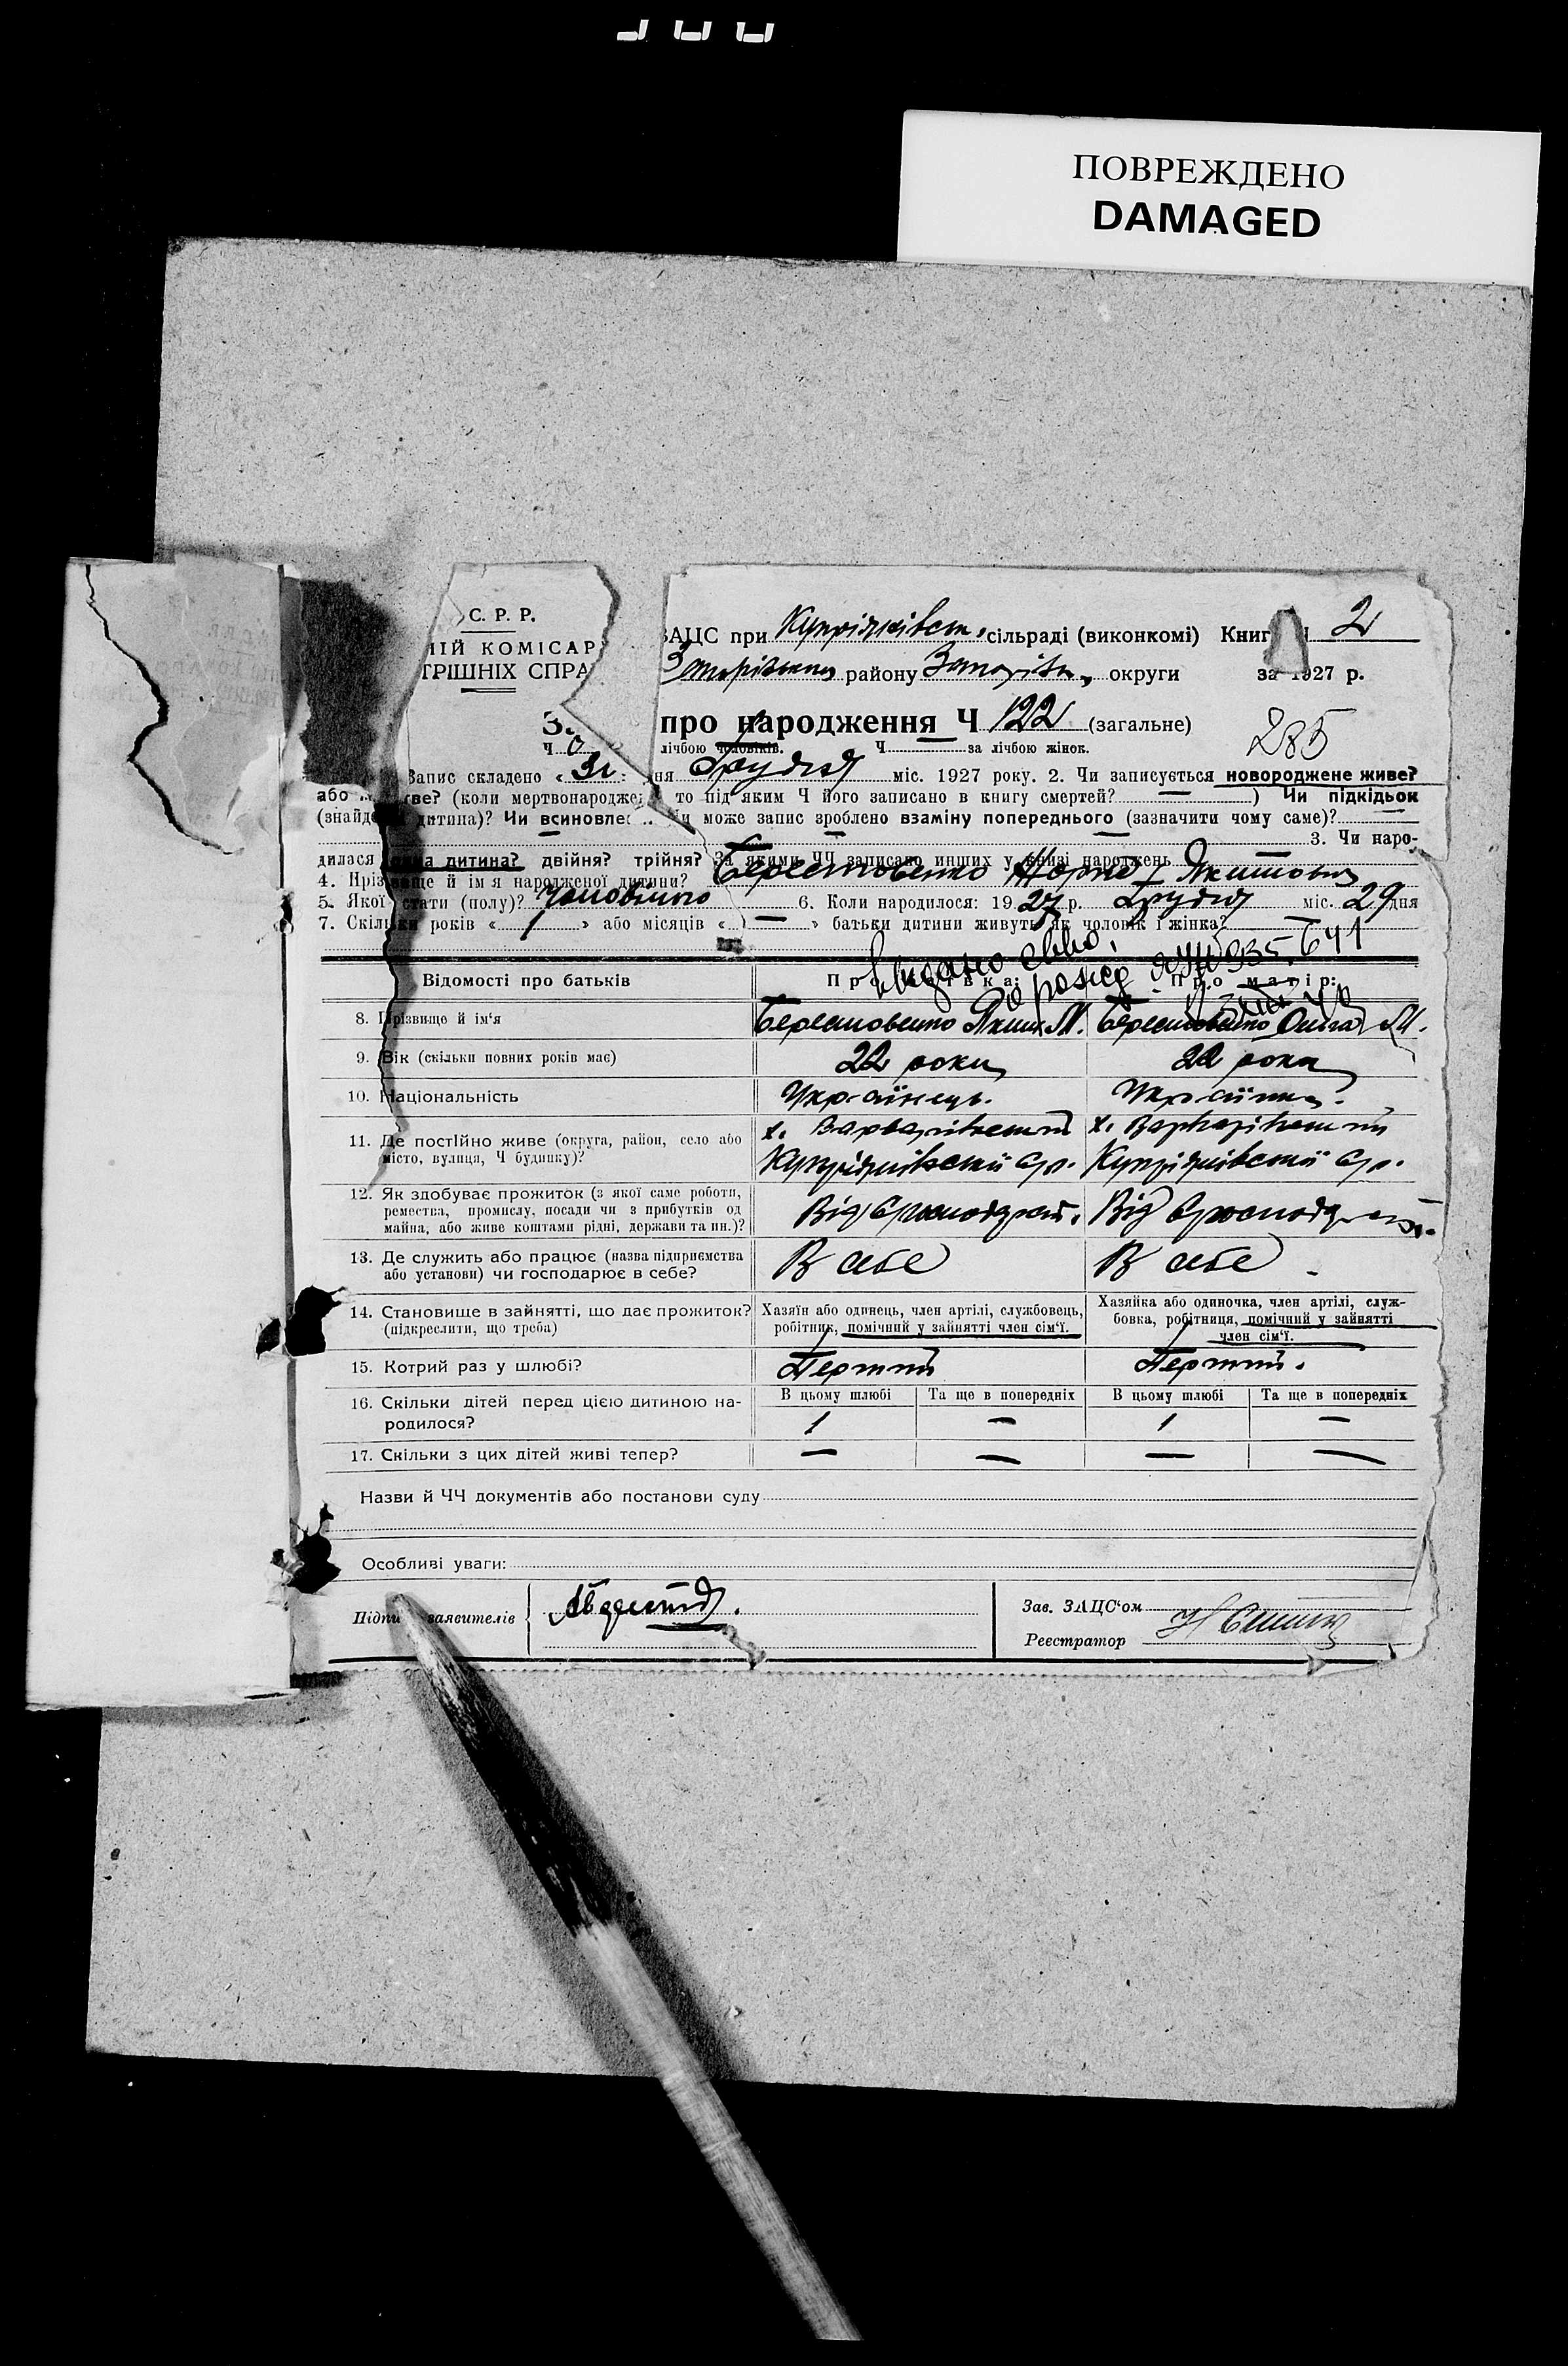 ПОВРЕЖДЕНО
DAMAGED
С. Р. Р.
ЗАЦС при сільраді (виконкомі) Книг 2
НІЙ КОМІСАР
району округи за 1927 р.
ТРІШНІХ СПРА
За про народження Ч 122 (загальне)
285
Ч лічбою чоловіків. Ч за лічбою жінок.
Запис складено « 31 дня Грудня міс. 1927 року. 2. Чи записується новороджене живе?
або тве? (коли мертвонароджe то під яким Ч його записано в книгу смертей? — ) Чи підкідьок
(знайде дитина)? Чи всиновлe Чи може запис зроблено взаміну попереднього (зазначити чому саме)? —
3. Чи наро-
дилася одна дитина? двійня? трійня? За якими ЧЧ записано инших у книзі народжень
4. Прізвище й ім'я народженої дитини? Берестовенко
5. Якої стати (полу)? 6. Коли народилося: 1927 р. Грудня міс. 29 дня
7. Скільки років « 1 » або місяців « — » батьки дитини живуть як чоловік і жінка? —
Видано
935.641
Відомості про батьків Про батька: Про матір:
8. Прізвище й ім'я Берестовенко М. Берестовенко Ольга М.
9. Вік (скільки повних років має) 22 роки 22 роки
10. Національність Українець. Українка.
11. Де постійно живе (округа, район, село або х. х.
місто, вулиця, Ч будинку)?
12. Як здобуває прожиток (з якої саме роботи,
ремества, промислу, посади чи з прибутків од Від Від
майна, або живе коштами рідні, держави та ин.)?
13. Де служить або працює (назва підприємства В себе В себе
або установи) чи господарює в себе?
14. Становище в зайнятті, що дає прожиток? Хазяїн або одинець, член артілі, службовець, Хазяйка або одиночка, член артілі, служ-
(підкреслити, що треба) робітник, помічний у зайнятті член сім'ї. бовка, робітниця, помічний у зайнятті
член сім'ї.
15. Котрий раз у шлюбі? Перший Перший.
16. Скільки дітей перед цією дитиною на- В цьому шлюбі Та ще в попередніх В цьому шлюбі Та ще в попередніх
родилося? 1 — 1 —
17. Скільки з цих дітей живі тепер? — — — —
Назви й ЧЧ документів або постанови суду
Особливі уваги:
Підпи заявителів
Зав. ЗАЦС'ом
Реєстратор